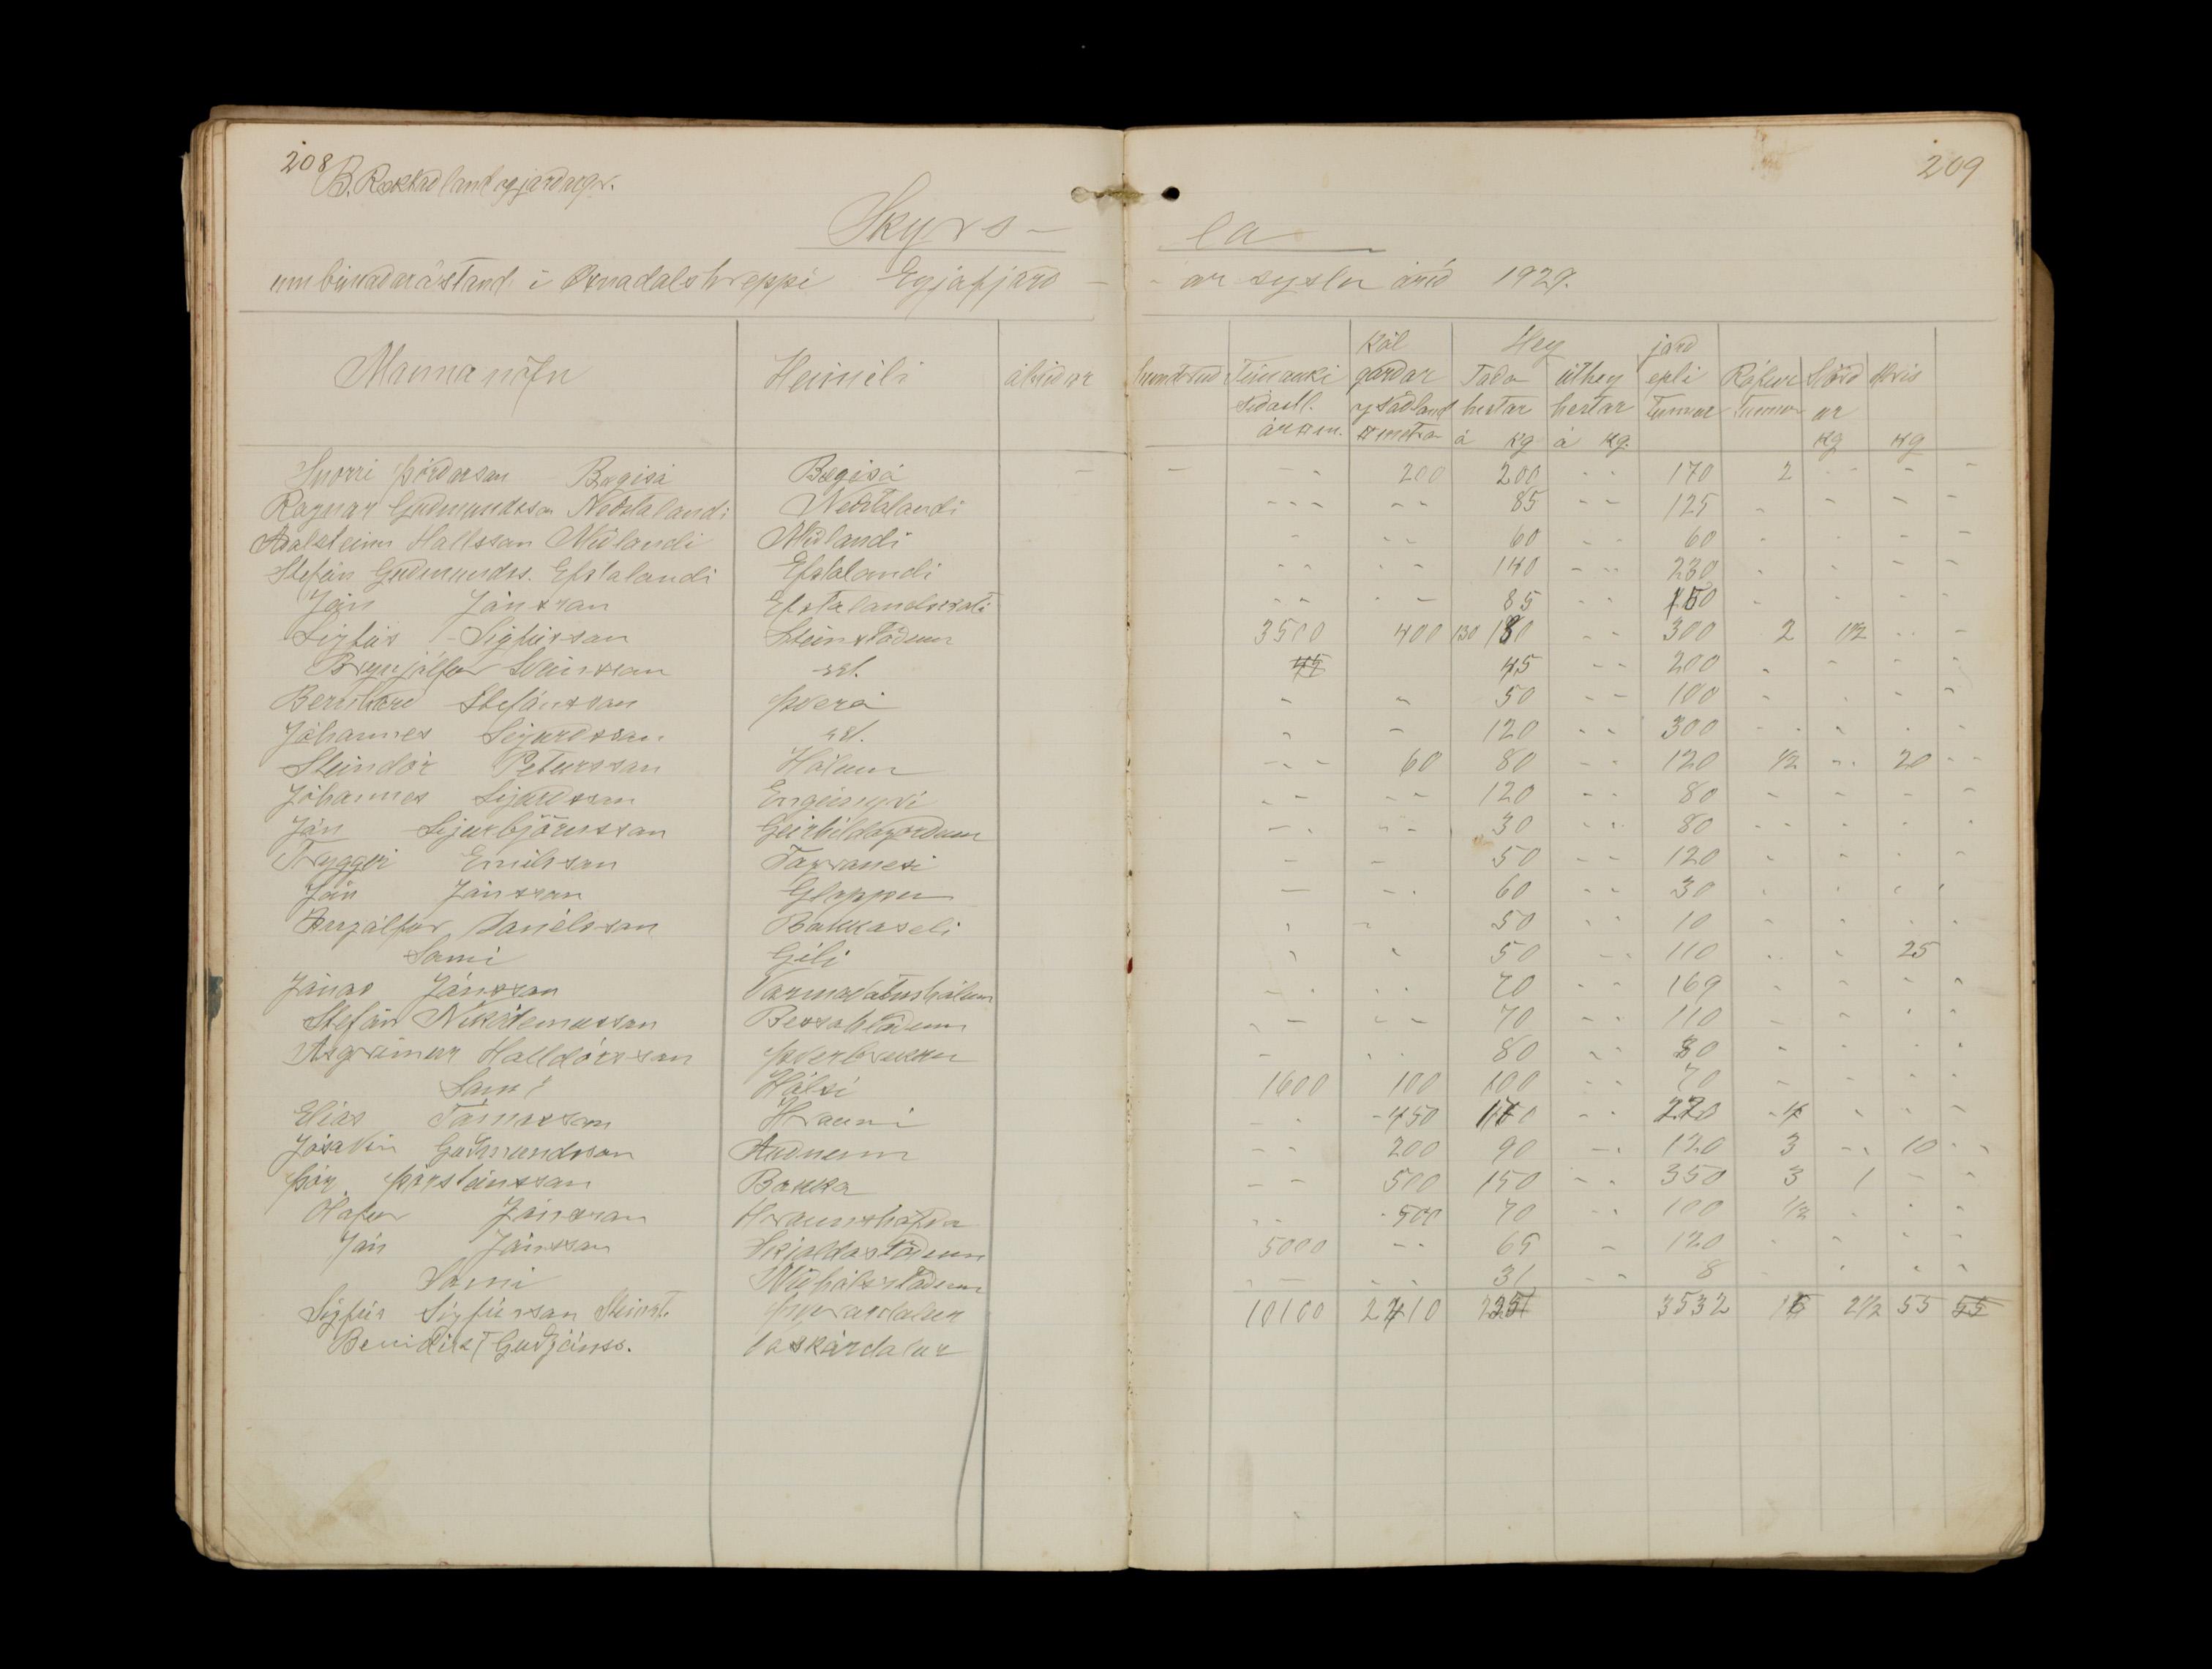 208
B. Ræktað land og jarðargr.
209
Skyrs - la
um búnaðarástand í Öxnadalshreppi Eyjafjarð - - ar syslu árið 1929.
Manna nöfn Heimili ábúðar hundruð Túnauki síðastl. ár □ m. Kál garðar og sáðland □ metra Hey Taða hestar á kg úthey hestar á kg. jarð epli Tunnur Rófur Tunnur Svörð ur kg Hrís kg
Snorri Þórðarson Bægisá Bægisá - - - - 200 200 - - 170 2 - - - -
Ragnar Guðmundsson Neðstalandi Neðstalandi - - - - - 85 - - 125 - - - -
Aðalsteinn Hallsson Miðlandi Miðlandi - - - 60 - - 60 - - - -
Stefán Guðmundss. Efstalandi Efstalandi - - - - 140 - - 230 - - - -
Jón Jónsson Efstalandskoti - - - - 85 - - 150 - - - -
Sigfús Sigfússon Steinstöðum 3500 400 130 180 - - 300 2 1/2 - - -
Brynjólfur Sveinsson sst. 45 45 - - 200 - - - -
Bernharð Stefánsson Þverá - - 50 - - 100 - - - -
Jóhannes Sigurðsson sst. - - 120 - - 300 - - - - -
Steindór Pétursson Hólum - - - 60 80 - - 120 1/2 - - 20 - -
Jóhannes Sigurðsson Engimýri - - - - 120 - - 80 - - - -
Jón Sigurbjörnsson Geirhildargörðum - - - - 30 - - 80 - - - - -
Tryggvi Emilsson Fagranesi - - 50 - - 120 - - - -
Jón Jónsson Gloppu - - - 60 - - 30 - - - -
Ingólfur Daníelsson Bakkaseli - - 50 - - 10 - - - -
Sami Gili - - 50 - - 110 - - - 25
Jónas Jónsson Varmavatnshólum - - - - 70 - - 169 - - - -
Stefán Nikódemusson Bessahlöðum - - - - 70 - - 110 - - - -
Asgrímur Halldórsson Þverbrekku - - - 80 - - 80 - - - -
Sami Hólsi 1600 100 100 - - 70 - - - -
Elías Tómasson Hrauni - - - 450 170 - - 220 - 4 - - -
Jósavin Guðmundsson Auðnum - - 200 90 - - 120 3 - - 10 - -
Þór Þorsteinsson Bakka - - 500 150 - - 350 3 1 - -
Ólafur Jónsson Hraunshöfða - - - 500 70 - - 100 1/2 - - -
Jón Jónsson Skjaldastöðum 5000 - - 65 - 120 - - - -
Sami Miðhálsstöðum - - - - 31 - - 8 - - - -
Sigfús Sigfússon Steinst. 10100 2410 2251 3532 15 2 1/2 55 55
Benidikt Guðjónss. Vaskárdalur